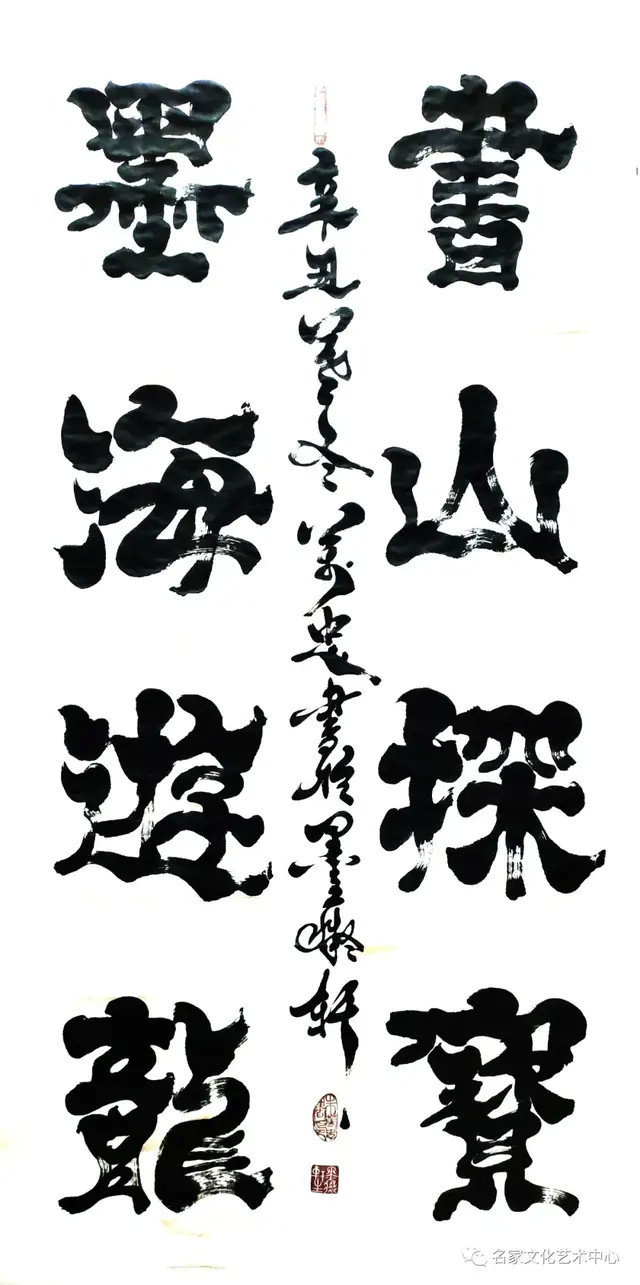 書山探寶
辛丑之冬萬忠書於墨凝軒
墨海遊龍
名家文化艺术中心